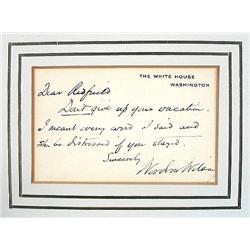 THE WHITE HOUSE
WASHINGTON
Dear Redfield
Don't give up your vacation.
I meant every word I said and
be distressed if you stayed.
Sincerely
Woodrow Wilson